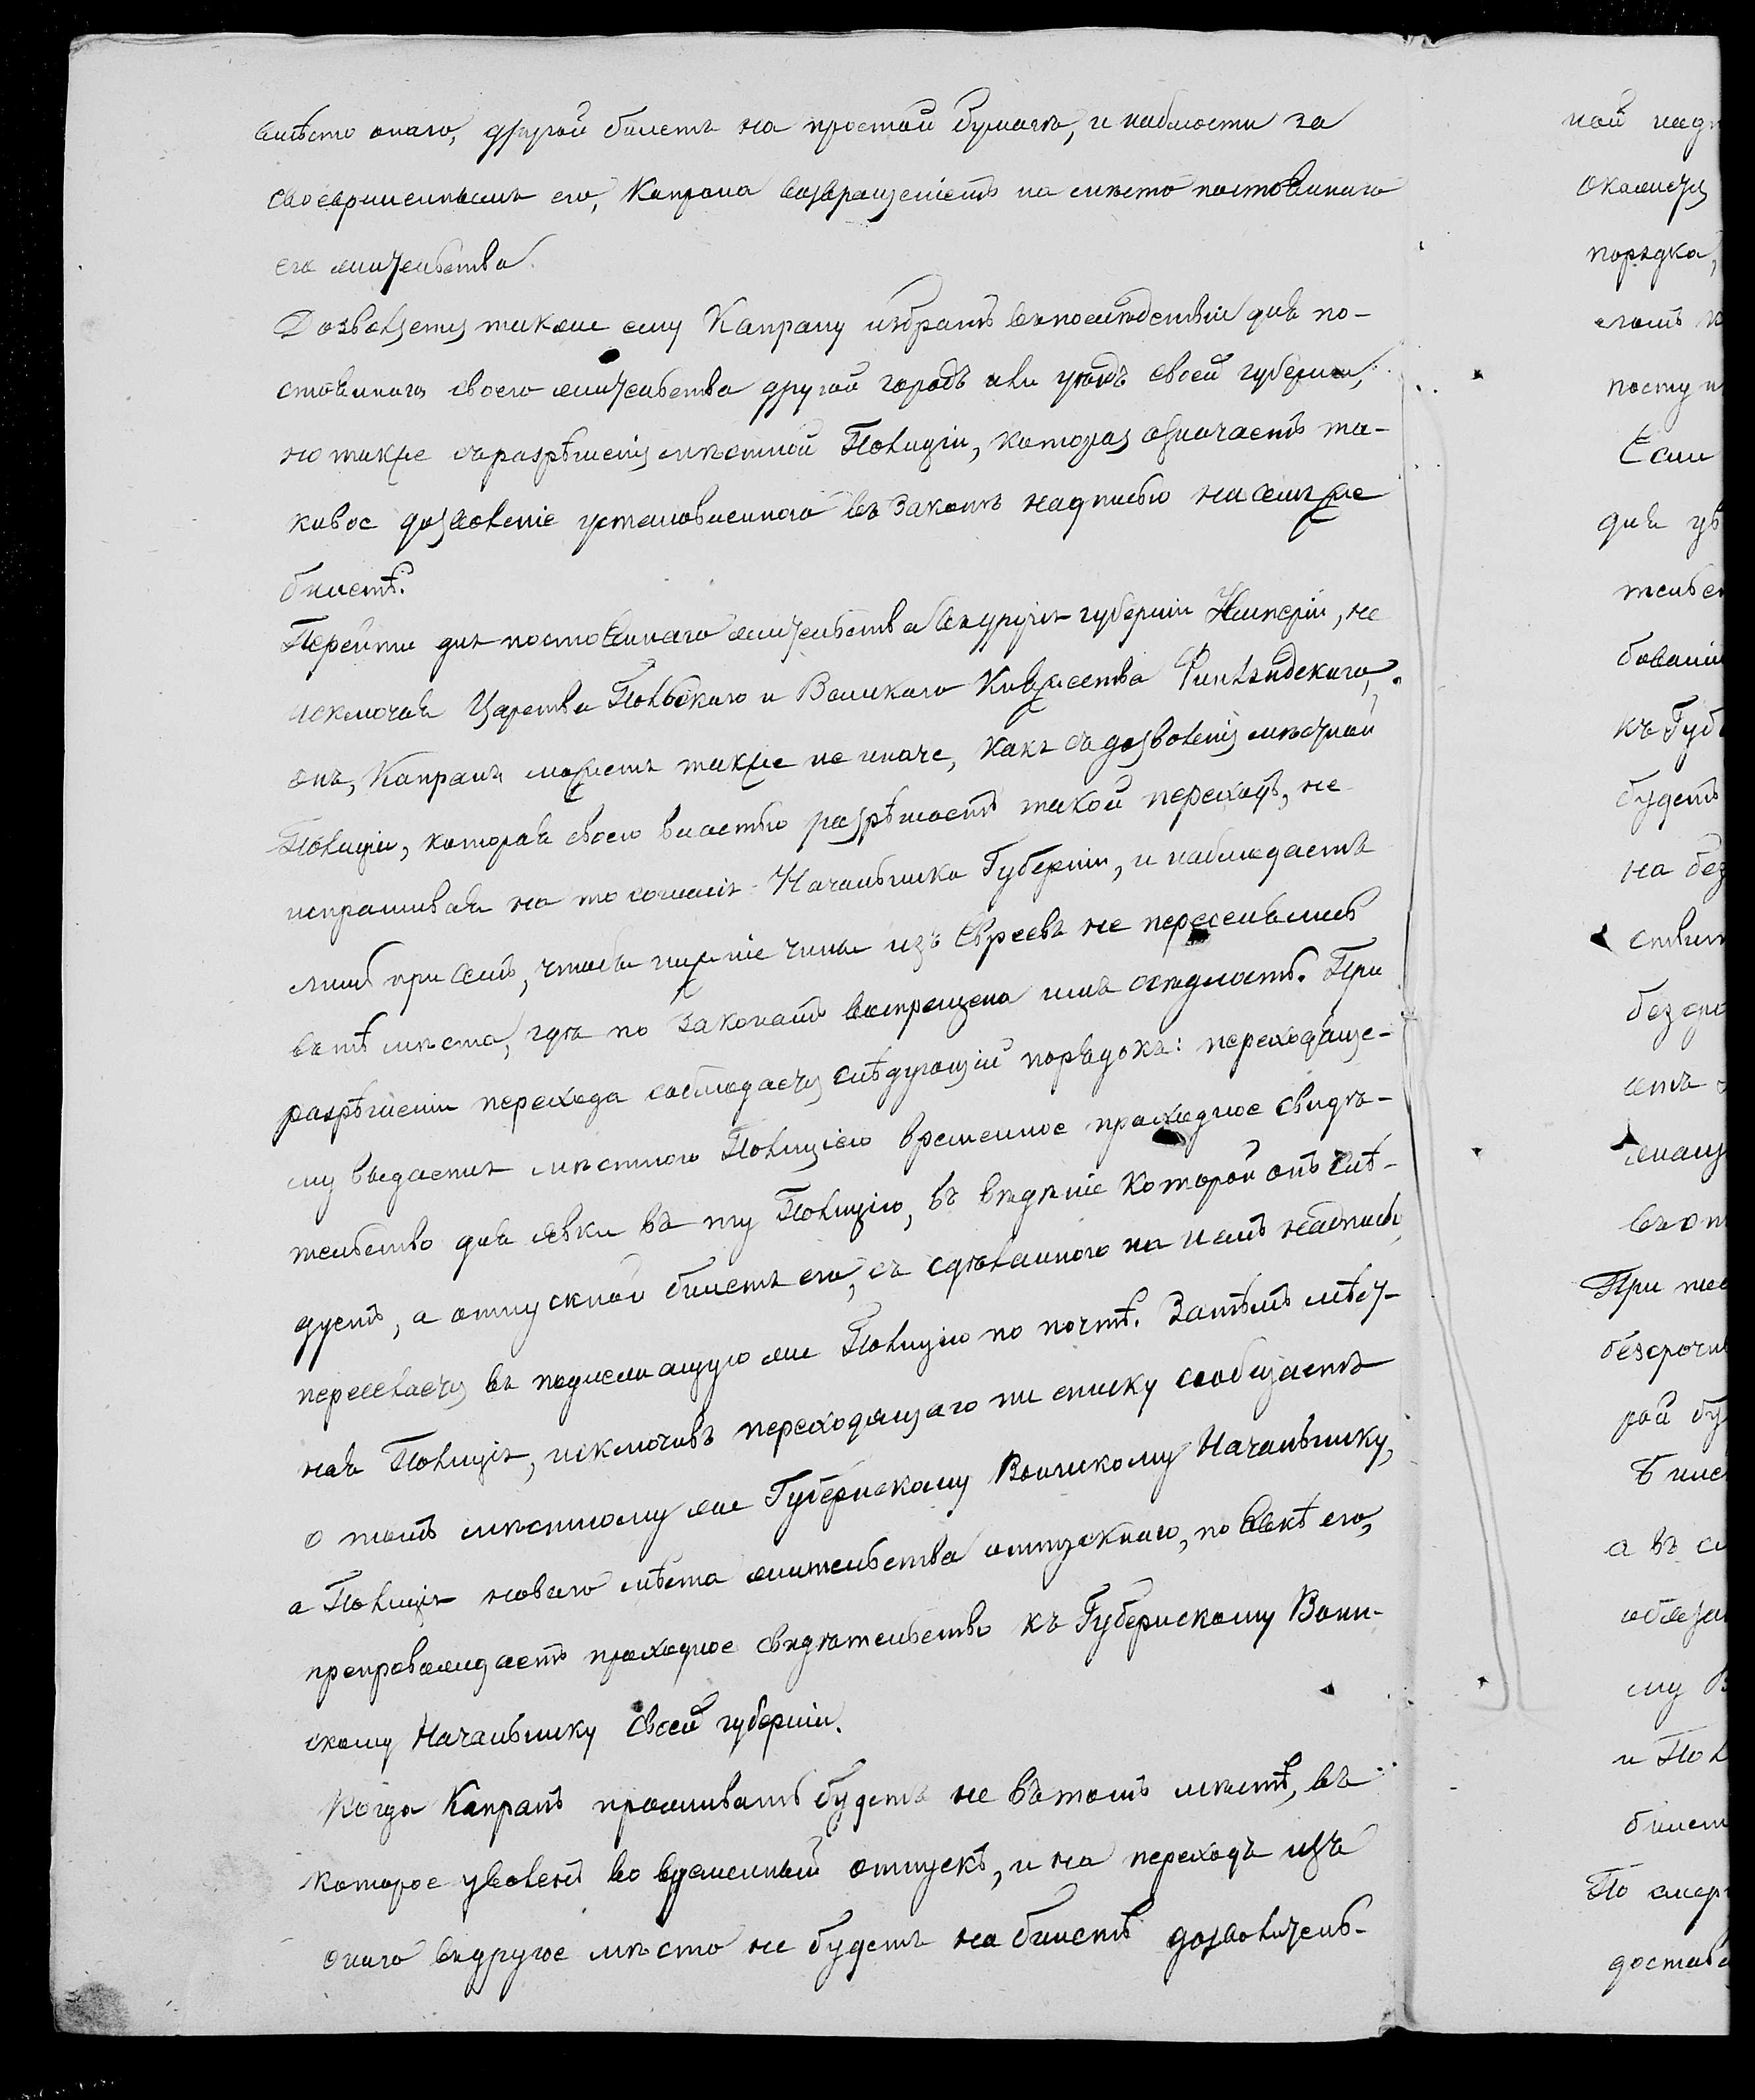 вмѣсто онаго, другой билетъ на простой бумагѣ, и наблюсти за
своевременнымъ его, Капрана возвращеніемъ на мѣсто постояннаго
его жительства.
Дозволяется также ему Капрану избрать впослѣдствіи для по-
стояннаго своего жительства другой городъ или уѣздъ своей губерніи,
но также съ разрѣшенія мѣстной Полиціи, которая означаетъ та-
ковое дозволеніе установленною въ законѣ надписью на семъ же
билетѣ.
Перейти для постояннаго жительства въ другія губерніи Имперіи, не
исключая Царства Польскаго и Великаго Княжества Финляндскаго,
онъ, Капранъ можетъ также не иначе, какъ съ дозволенія мѣстной
Полиціи, которая своею властью разрѣшаетъ такой переходъ, не
испрашивая на то согласія Начальника Губерніи, и наблюдаетъ
лишь при семъ, чтобы нижніе чины изъ Евреевъ не переселялись
въ тѣ мѣста, гдѣ по законамъ воспрещена имъ осѣдлость. При
разрѣшеніи перехода соблюдается слѣдующій порядокъ: переходяще-
му выдается мѣстною Полиціею временное проходное свидѣ-
тельство для явки въ ту Полицію, въ вѣдѣніе которой онъ слѣ-
дуетъ, а отпускной билетъ его, съ сдѣланною на немъ надписью,
пересылается въ подлежащую же Полицію по почтѣ. Затѣмъ мѣст-
ная Полиція, исключивъ переходящаго по списку сообщаетъ
о томъ мѣстному же Губернскому Воинскому Начальнику,
а Полиція новаго мѣста жительства отпускнаго, по явкѣ его,
препровождаетъ проходное свидѣтельство къ Губернскому Воин-
скому Начальнику своей губерніи.
Когда Капранъ проживать будетъ не въ томъ мѣстѣ, въ
которое уволенъ во временный отпускъ, и на переходъ изъ
онаго въ другое мѣсто не будетъ на билетѣ дозволитель-
ной надп
окажется
порядка,
поступ
Если
для ув
тельс
бовані
къ Губ
будетъ
на без
ствит
безсро
въ от
При
безсрочн
рой бу
Биле
а въ с
обяза
му В
и Пол
билет
По смер
достав